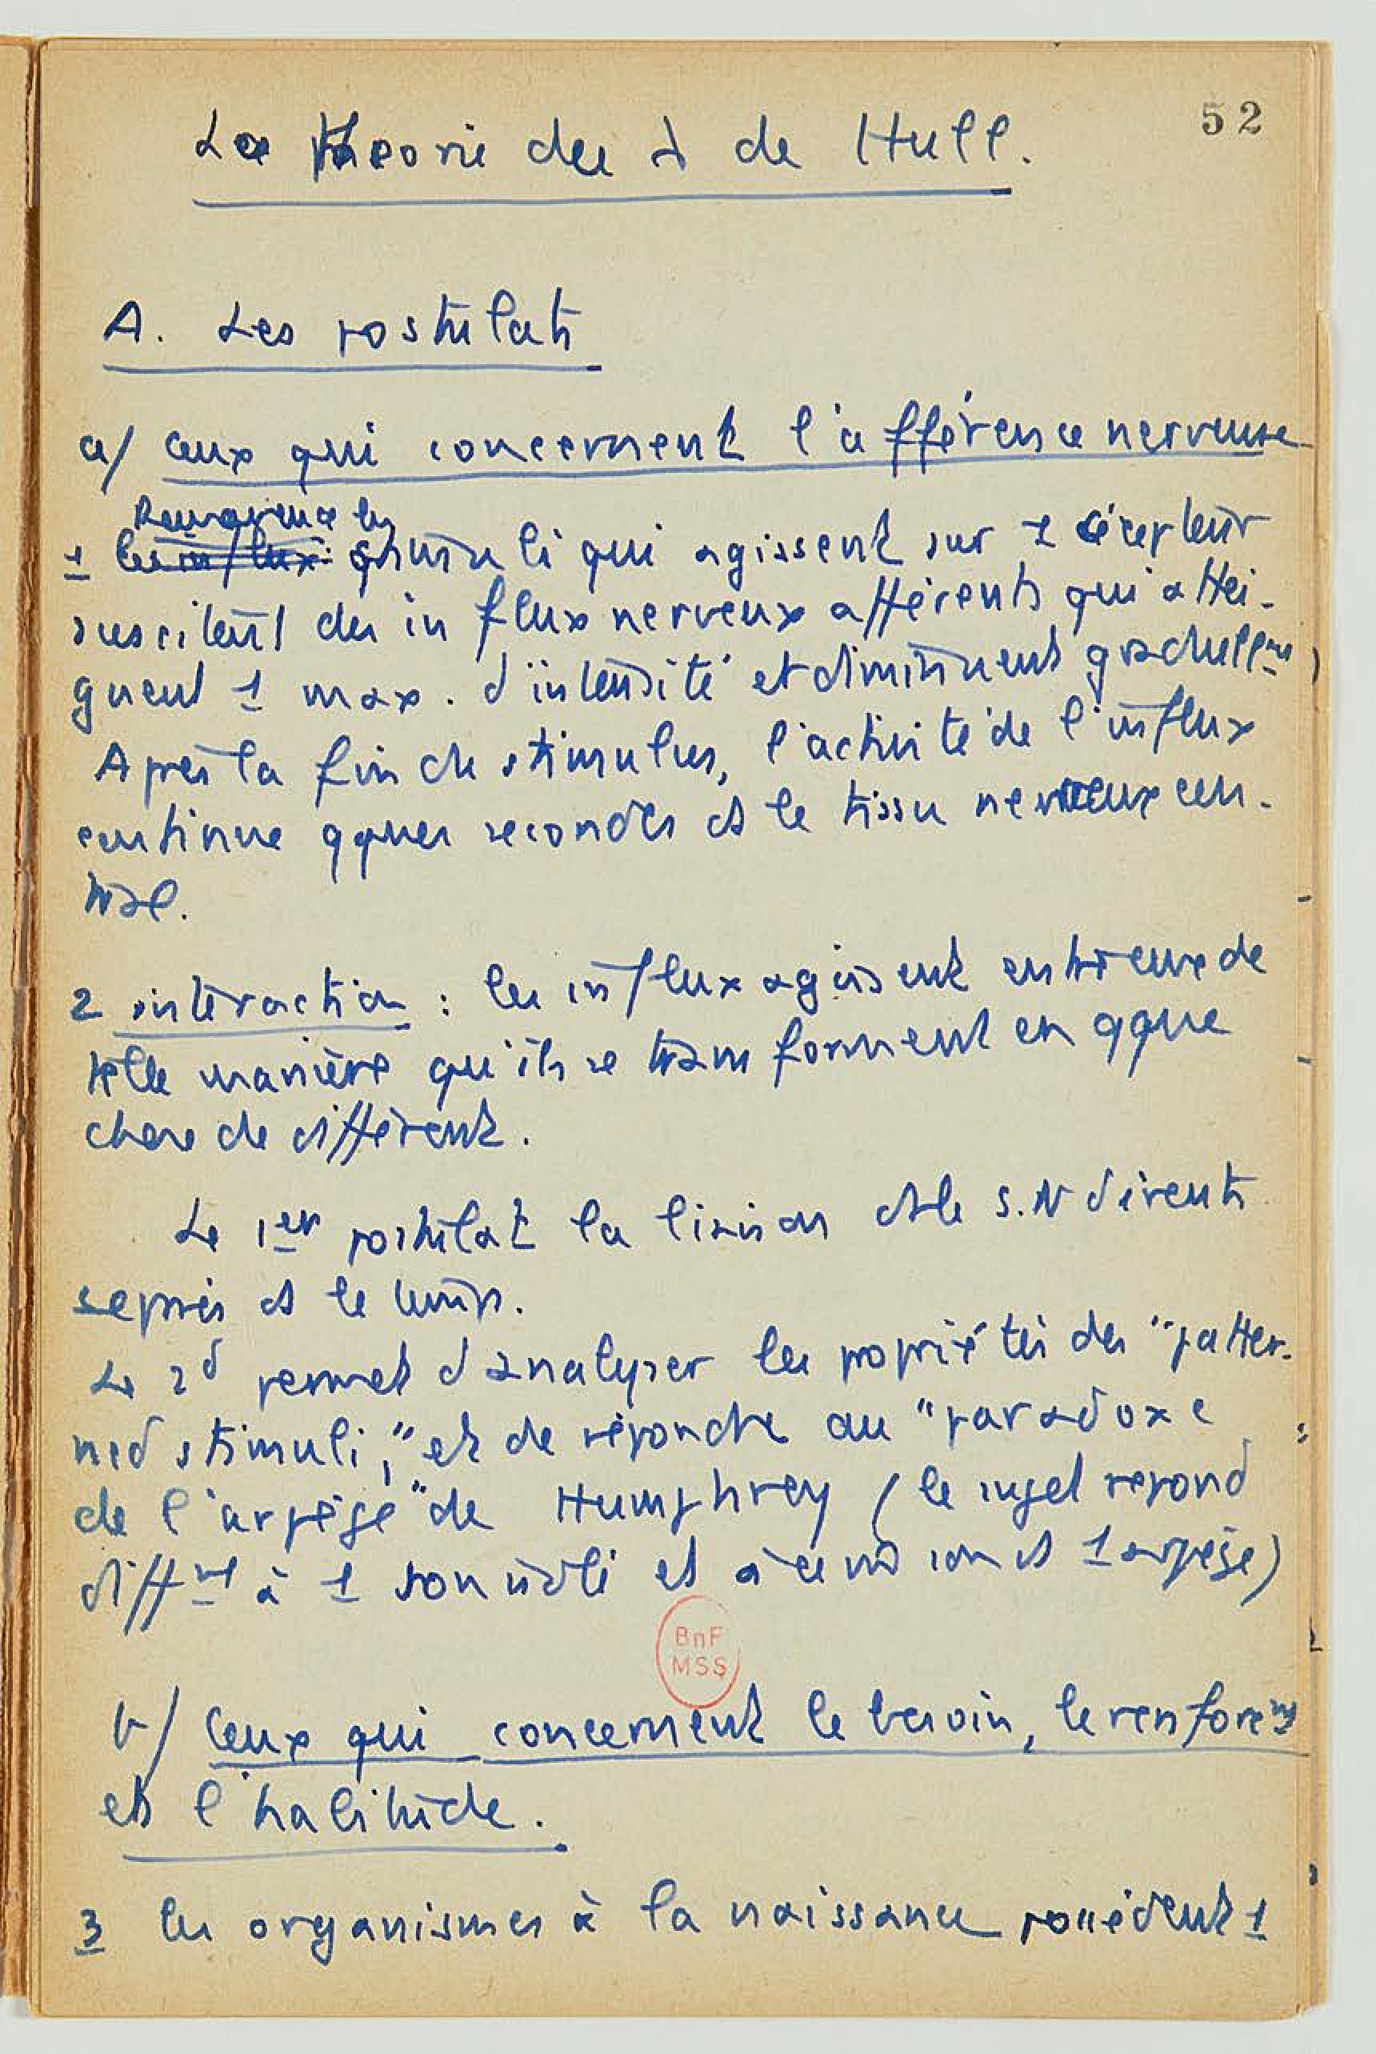 52
La theorie de de Hull.
A. Les postulats
a/ Ceux qui concernent l'afférence nerveuse
les
1 les influx stimuli qui agissent sur 1 récepteur
suscitent des influx nerveux afférents qui attei-
gnent 1 max. d'intensité et diminuent graduellmt
Après la fin du stimulus, l'activité de l'influx
continue qques secondes ds le tissu nerveux cen-
tral.
2 interaction : les influx agissent entre eux de
telle manière qu'ils se transforment en qque
chose de différent.
Le 1er postulat la liaison ds le S.N d'évents
séparés ds le temps.
Le 2d permet d'analyser les propriétés des "patter-
ned stimuli," et de répondre au "paradoxe
de l'arpège" de Humphrey (le sujet répond
difft à 1 son isolé et à ce son ds 1 arpège)
BnF
MSS
b/ Ceux qui concernent le besoin, le renforcemt
et l'habitude.
3 les organismes à la naissance possèdent 1